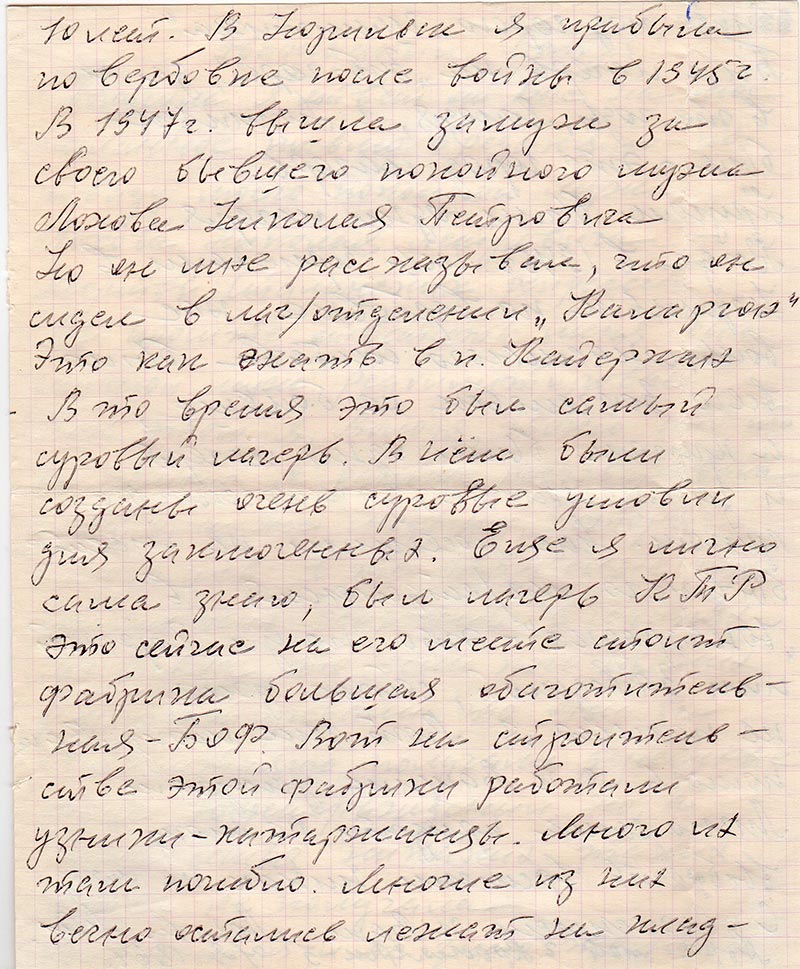 10 лет. В Норильск я прибыла
по вербовке после войны в 1945г.
В 1947г. вышла замуж за
своего бывшего покойного мужа
Лохова Николая Петровича
Но он мне рассказывал, что он
сидел в лаг/отделении „Каларгон"
Это как ехать в п. Кайеркан
В то время это был самый
суровый лагерь. В нём были
созданы очень суровые условии
для заключенных. Еще я лично
сама знаю, был лагерь КТР
это сейчас на его месте стоит
фабрика большая обагатитель-
ная-БОФ. Вот на строитель-
стве этой фабрики работали
узники-катаржанцы. Много их
там погибло. Многие из них
вечно остались лежать на клад-